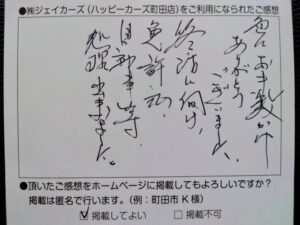 ●㈱ジェイカーズ(ハッピーカーズ町田店)をご利用になられたご感想
色々お手数かけ
ありがとう
ございました。
終活に向け、
免許、
自動車等
処理出来ました。
●頂いたご感想をホームページに掲載してもよろしいですか?
掲載は匿名で行います。(例:町田市 K 様)
☑ 掲載してよい □ 掲載不可